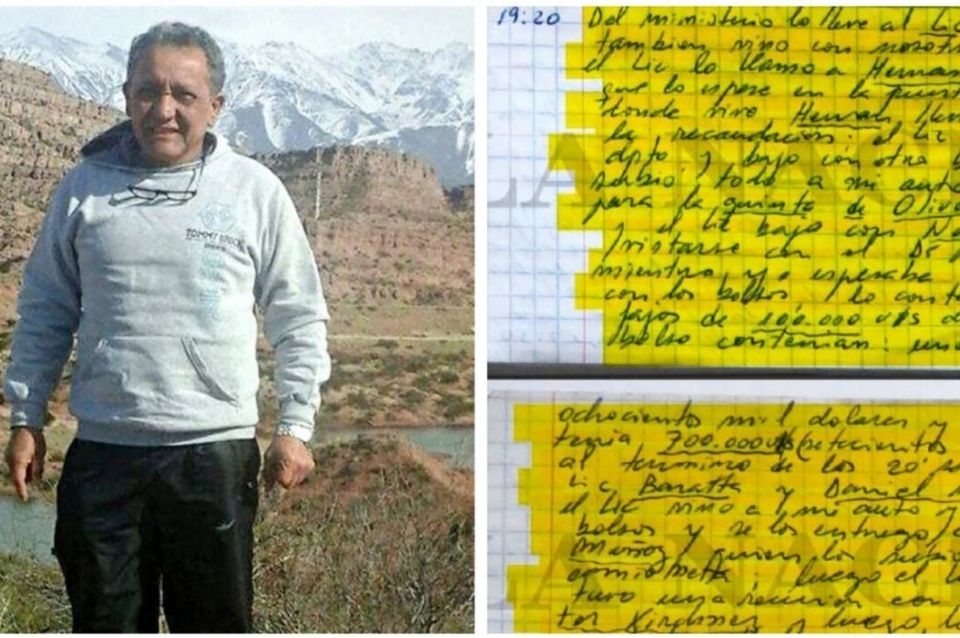 TOMMY
19:20 Del ministerio lo lleve al Lic
tambien vino con nosotr
el Lic lo llamo a Hernan
que lo espere en la puert
donde vive Hernan,
la recaudacion: el Lic
dpto y bajo con otro
subió todo a mi auto
para la quinta de Oliv
el Lic bajo con N
ntarse con el Dr
mientra, yo esperaba
con los bolsos, lo cont
fajos de 100.000 U$S d
bolso contenian: un
LA NAC
ochociento mil dolares y
tenia 700.000 U$S (setecientos
al termino de los 20
Lic Baratta y Daniel
el Lic vino a mi auto y
bolsos y se los entrego
Muñoz, quien los subio
camioneta, luego el
tuvo una reunion con
tor Kirchner y luego,
LA NAC